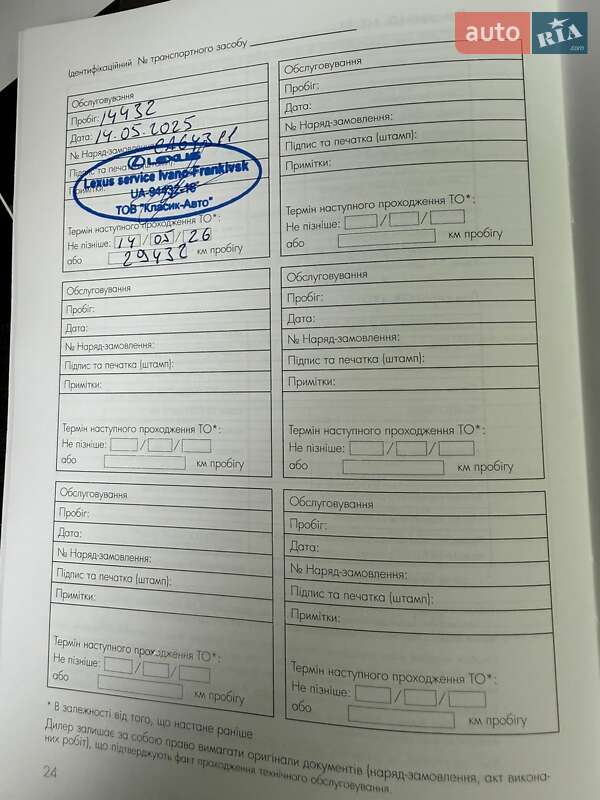 auto RIA .com
Ідентифікаційний № транспортного засобу
Обслуговування
Пробіг: 14432
Дата: 14.05.2025
№ Наряд-замовлення:
Підпис та печатка (штамп):
Примітки:
LEXUS
Lexus service Ivano-Frankivsk
UA-94432-16
ТОВ "Класик-Авто"
Термін наступного проходження ТО*:
Не пізніше: 14/05/26
або 29432 км пробігу
Обслуговування
Пробіг:
Дата:
№ Наряд-замовлення:
Підпис та печатка (штамп):
Примітки:
Термін наступного проходження ТО*:
Не пізніше: / /
або км пробігу
Обслуговування
Пробіг:
Дата:
№ Наряд-замовлення:
Підпис та печатка (штамп):
Примітки:
Термін наступного проходження ТО*:
Не пізніше: / /
або км пробігу
Обслуговування
Пробіг:
Дата:
№ Наряд-замовлення:
Підпис та печатка (штамп):
Примітки:
Термін наступного проходження ТО*:
Не пізніше: / /
або км пробігу
Обслуговування
Пробіг:
Дата:
№ Наряд-замовлення:
Підпис та печатка (штамп):
Примітки:
Термін наступного проходження ТО*:
Не пізніше: / /
або км пробігу
Обслуговування
Пробіг:
Дата:
№ Наряд-замовлення:
Підпис та печатка (штамп):
Примітки:
Термін наступного проходження ТО*:
Не пізніше: / /
або км пробігу
* В залежності від того, що настане раніше
Дилер залишає за собою право вимагати оригінали документів (наряд-замовлення, акт викона-
них робіт), що підтверджують факт проходження технічного обслуговування.
24